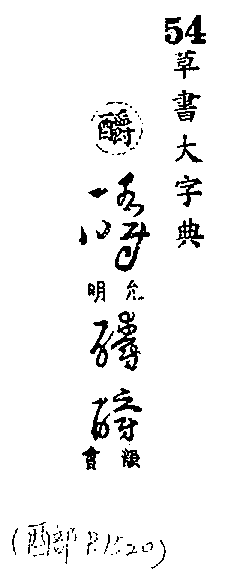 54
草書大字典
釂
允明
韻會
(酉部 P.1520)